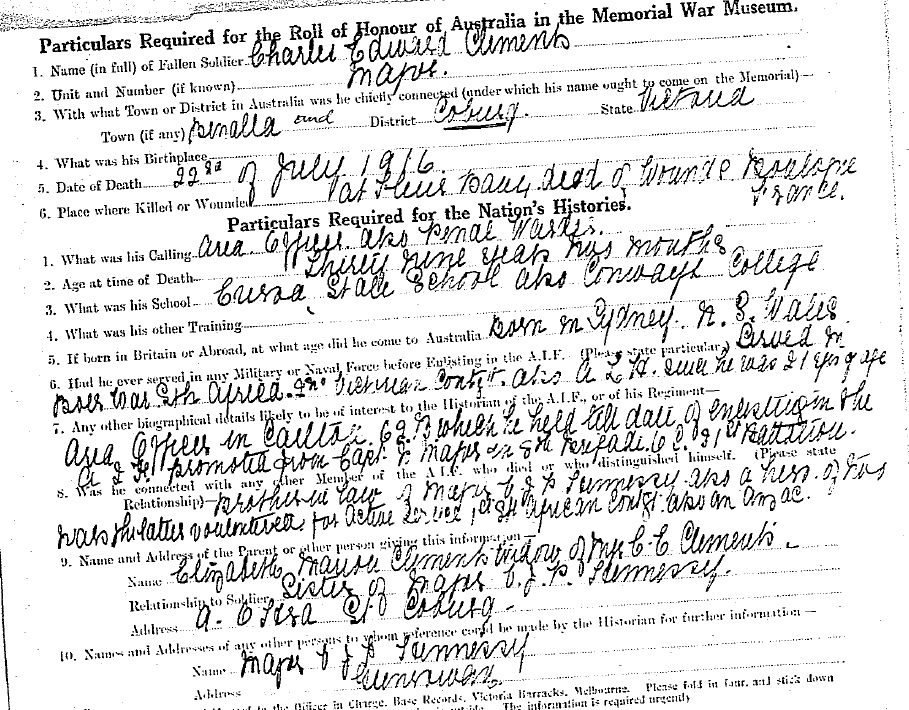 Particulars Required for the Roll of Honour of Australia in the Memorial War Museum.
1. Name (in full) of Fallen Soldier Charles Edward Clements
2. Unit and Number (if known) Major.
3. With what Town or District in Australia was he chiefly connected (under which his name ought to come on the Memorial)—
Town (if any) Benalla and District Coburg. State Victoria
4. What was his Birthplace
5. Date of Death 22nd of July 1916.
6. Place where Killed or Wounded at Fleur Baux, died of Wounds Boulogne
France.
Particulars Required for the Nation's Histories.
1. What was his Calling Area Officer also Penal Warder.
2. Age at time of Death Thirty nine years two months
3. What was his School Euroa State School also Conways College
4. What was his other Training
5. If born in Britain or Abroad, at what age did he come to Australia Born in Sydney. N. S. Wales
6. Had he ever served in any Military or Naval Force before Enlisting in the A.I.F. (Please state particular) Served in
Boer War Sth Africa. 2nd Victorian Contgt. also A L H. since he was 21 yrs of age
7. Any other biographical details likely to be of interest to the Historian of the A.I.F., or of his Regiment—
Area Officer in Carlton. which he held till date of enlisting in the
A I F promoted from Capt. to Major in 8th Brigade 31st Battalion.
8. Was he connected with any other Member of the A.I.F. who died or who distinguished himself. (Please state
Relationship)— Brother in Law of Major Hennessy also a hero of two
wars the latter volunteered for Active Service 1st Sth African Contgt. also an Anzac.
9. Name and Address of the Parent or other person giving this information—
Name Elizabeth Marion Clements Widow of C. E. Clements.
Relationship to Soldier Sister of Major Hennessy.
Address St Coburg.
10. Names and Addresses of any other persons to whom reference could be made by the Historian for further information—
Name Major Hennessy
Address
to the Officer in Charge, Base Records, Victoria Barracks, Melbourne. Please fold in four, and stick down
The information is required urgently